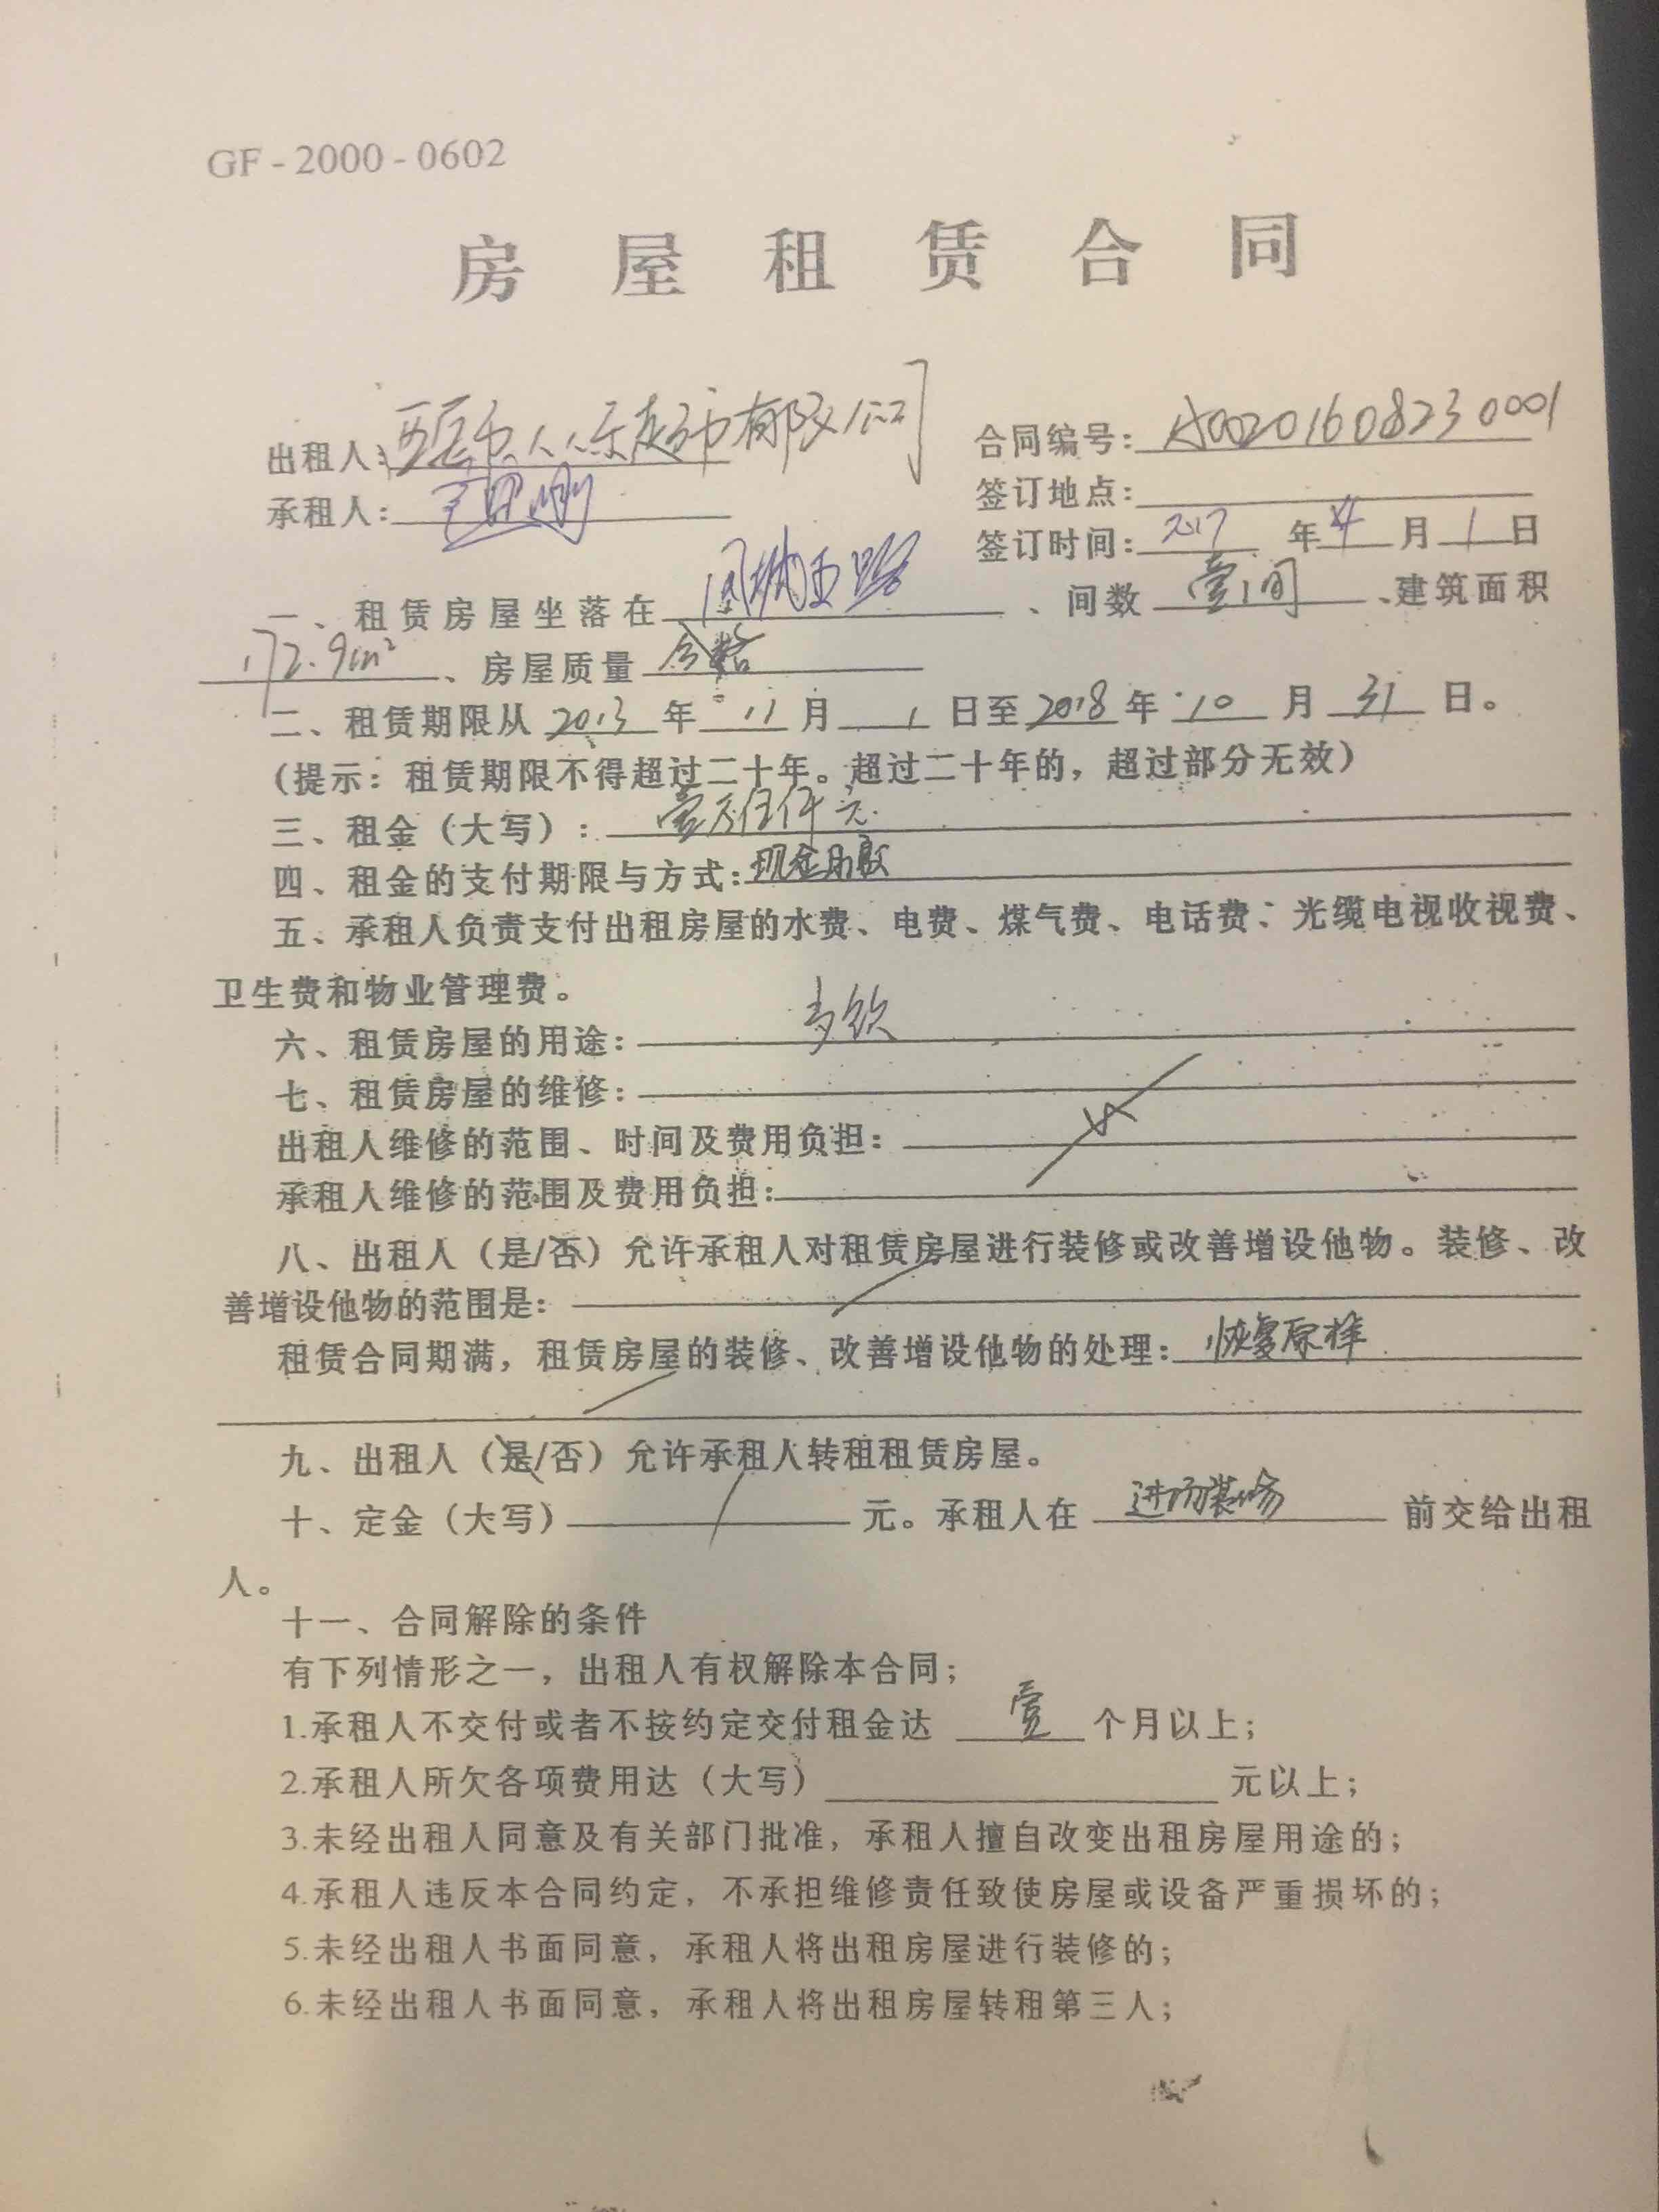 GF-2000-0602
房屋租赁合同
出租人: 有限公司 合同编号: 0020160823 0001
承租人: 签订地点:
签订时间: 2017 年 4 月 1 日
一、租赁房屋坐落在 凤城五路 、间数 壹间 、建筑面积
172.9m² 、房屋质量 合格
二、租赁期限从 2013 年 11 月 1 日至 2018 年 10 月 31 日。
(提示: 租赁期限不得超过二十年。超过二十年的, 超过部分无效)
三、租金 (大写): 壹万伍仟元
四、租金的支付期限与方式: 现金
五、承租人负责支付出租房屋的水费、电费、煤气费、电话费、光缆电视收视费、
卫生费和物业管理费。
六、租赁房屋的用途:
七、租赁房屋的维修:
出租人维修的范围、时间及费用负担:
承租人维修的范围及费用负担:
八、出租人 (是/否) 允许承租人对租赁房屋进行装修或改善增设他物。装修、改
善增设他物的范围是:
租赁合同期满, 租赁房屋的装修、改善增设他物的处理: 恢复原样
九、出租人 (是/否) 允许承租人转租租赁房屋。
十、定金 (大写) 元。承租人在 进场装修 前交给出租
人。
十一、合同解除的条件
有下列情形之一, 出租人有权解除本合同;
1.承租人不交付或者不按约定交付租金达 壹 个月以上;
2.承租人所欠各项费用达 (大写) 元以上;
3.未经出租人同意及有关部门批准, 承租人擅自改变出租房屋用途的;
4.承租人违反本合同约定, 不承担维修责任致使房屋或设备严重损坏的;
5.未经出租人书面同意, 承租人将出租房屋进行装修的;
6.未经出租人书面同意, 承租人将出租房屋转租第三人;